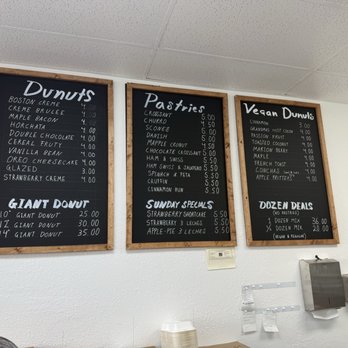 Dunuts
BOSTON CREME 4.00
CREME BRULEE
MAPLE BACON
HORCHATA 4.00
DOUBLE CHOCOLATE 4.00
CEREAL FRUIT 4.00
VANILLA BEAN 4.00
OREO CHEESECAKE 4.00
GLAZED 3.00
STRAWBERRY CREME 4.00
GIANT DONUT
10" GIANT DONUT 25.00
12 GIANT DONUT 30.00
14" GIANT DONUT 35.00
Pastries
CROISSANT 5.00
CHURRO 4.50
SCONES 5.00
DANISH 5.00
MAPPLE CRONUT 4.50
CHOCOLATE CROISSANT
HAM & SWISS 5.50
HAM SWISS & JALAPENO
SPINACH & FETA 5.50
CRUFFIN 5.50
CINNAMON BUN 5.50
SUNDAY SPECIALS
STRAWBERRY SHORTCAKE 5.50
STRAWBERRY 3 LECHES 5.50
APPLE-PIE 3 LECHES 5.50
Vegan Dunuts
CINNAMON
GRANDMAS HOT COCOA 4.00
PASSION FRUIT 4.00
TOASTED COCONUT 4.00
MARION BERRY 4.00
MAPLE 4.00
FRENCH TOAST
CONCHAS
APPLE FRITTERS
DOZEN DEALS
(NO PASTRIES)
1 DOZEN MIX 36.00
½ DOZEN MIX 28.00
(VEGAN & REGULAR)